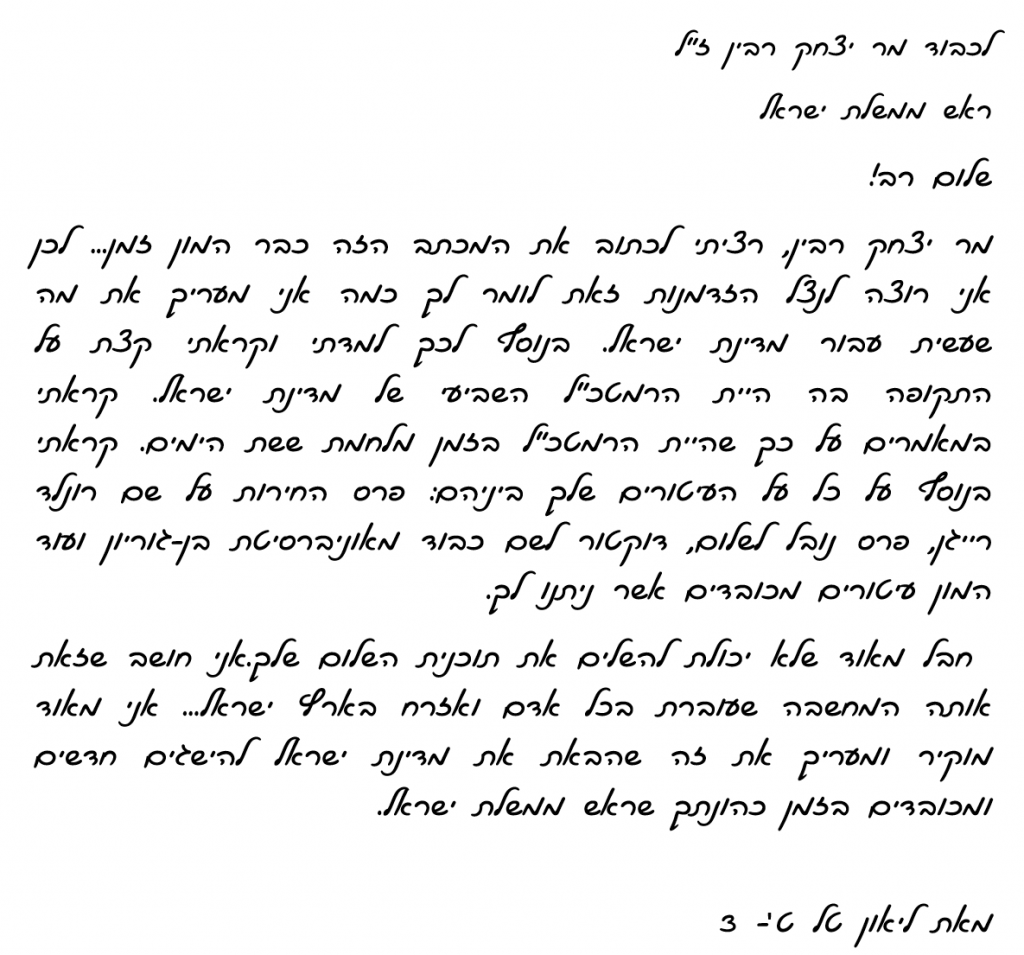 לכבוד מר יצחק רבין ז"ל
ראש ממשלת ישראל
שלום רב!
מר יצחק רבין, רציתי לכתוב את המכתב הזה כבר המון זמן... לכן
אני רוצה לנצל הזדמנות זאת לומר לך כמה אני מעריך את מה
שעשית עבור מדינת ישראל. בנוסף לכך למדתי וקראתי קצת על
התקופה בה היית הרמטכ"ל השביעי של מדינת ישראל. קראתי
במאמרים על כך שהיית הרמטכ"ל בזמן מלחמת ששת הימים. קראתי
בנוסף על כל על העיטורים שלך ביניהם: פרס החירות על שם רונלד
רייגן, פרס נובל לשלום, דוקטור לשם כבוד מאוניברסיטת בן-גוריון ועוד
המון עיטורים מכובדים אשר ניתנו לך.
חבל מאוד שלא יכולת להשלים את תוכנית השלום שלך.אני חושב שזאת
אותה המחשבה שעוברת בכל אדם ואזרח בארץ ישראל... אני מאוד
מוקיר ומעריך את זה שהבאת את מדינת ישראל להישגים חדשים
ומכובדים בזמן כהונתך שראש ממשלת ישראל.
מאת ליאון טל ט'- 3